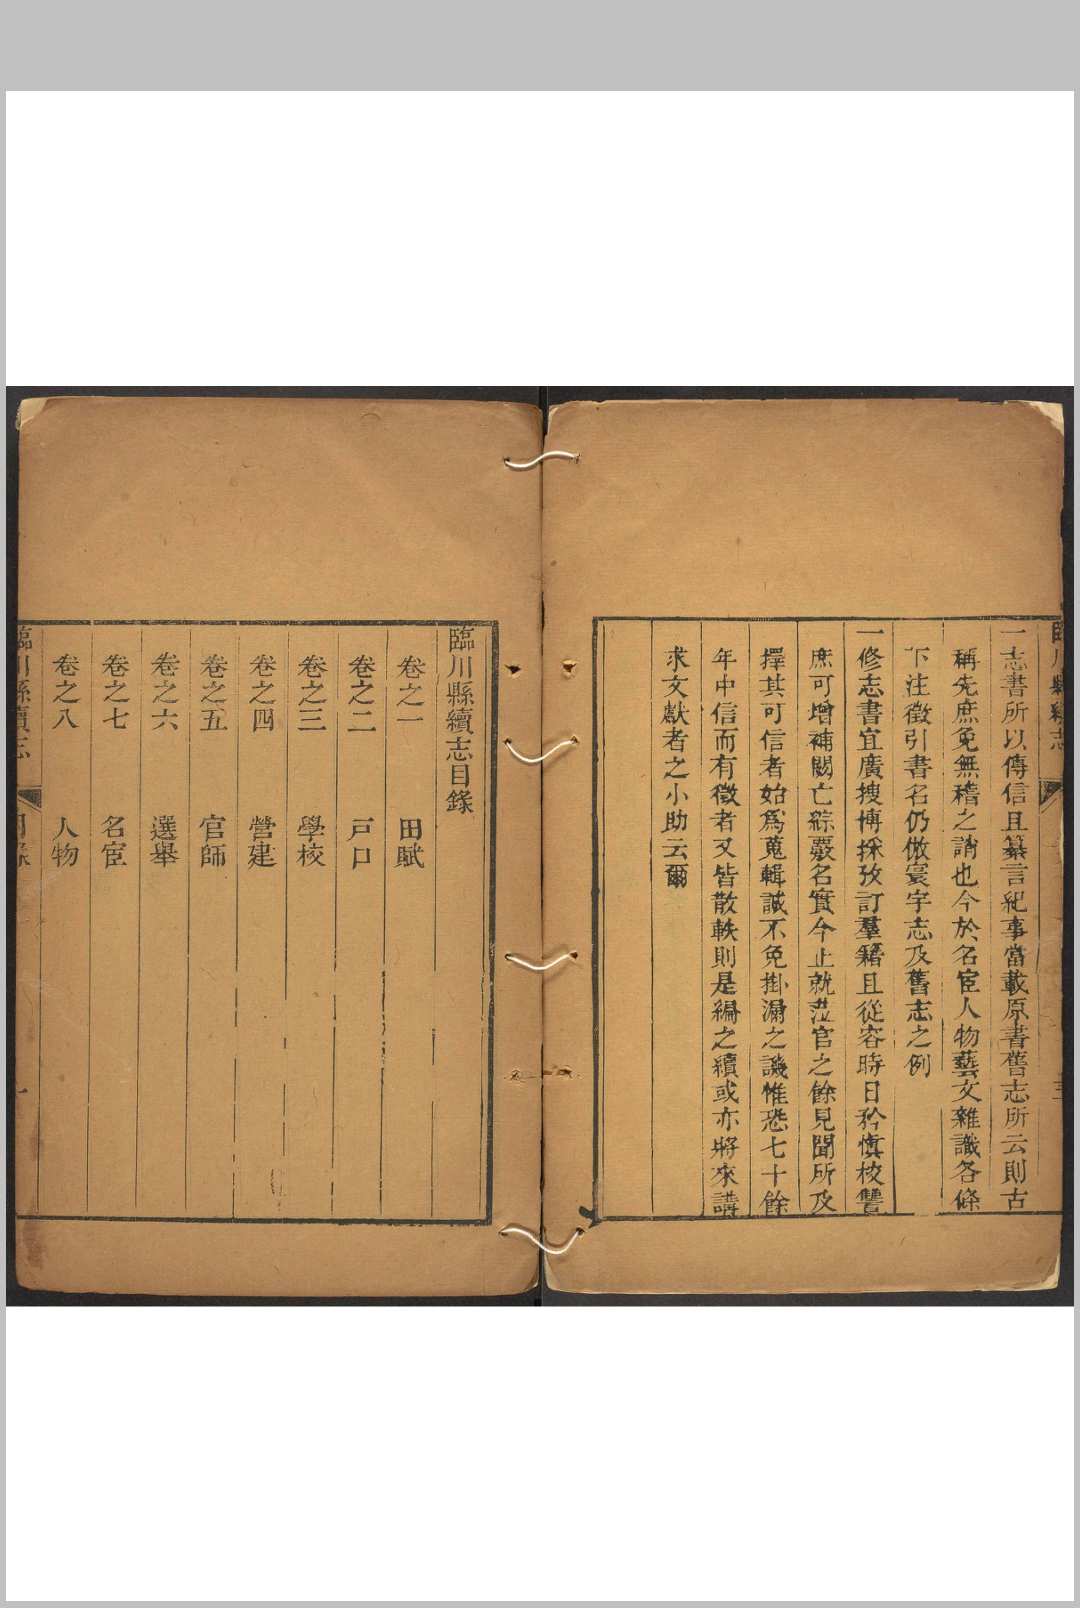 臨川縣續志
三
一志書所以傳信且纂言紀事當載原書舊志所云則古
稱先庶免無稽之誚也今於名宦人物藝文雜識各條
下注徵引書名仍倣寰宇志及舊志之例
一修志書宜廣搜博採攷訂羣籍且從容時日矜愼校讐
庶可增補闕亡綜覈名實今止就蒞官之餘見聞所及
擇其可信者始爲蒐輯誠不免掛漏之譏惟恐七十餘
年中信而有徵者又皆散軼則是編之續或亦將來講
求文獻者之小助云爾
臨川縣續志目錄
卷之一 田賦
卷之二 戸口
卷之三 學校
卷之四 營建
卷之五 官師
卷之六 選舉
卷之七 名宦
卷之八 人物
臨川縣續志 目錄 一